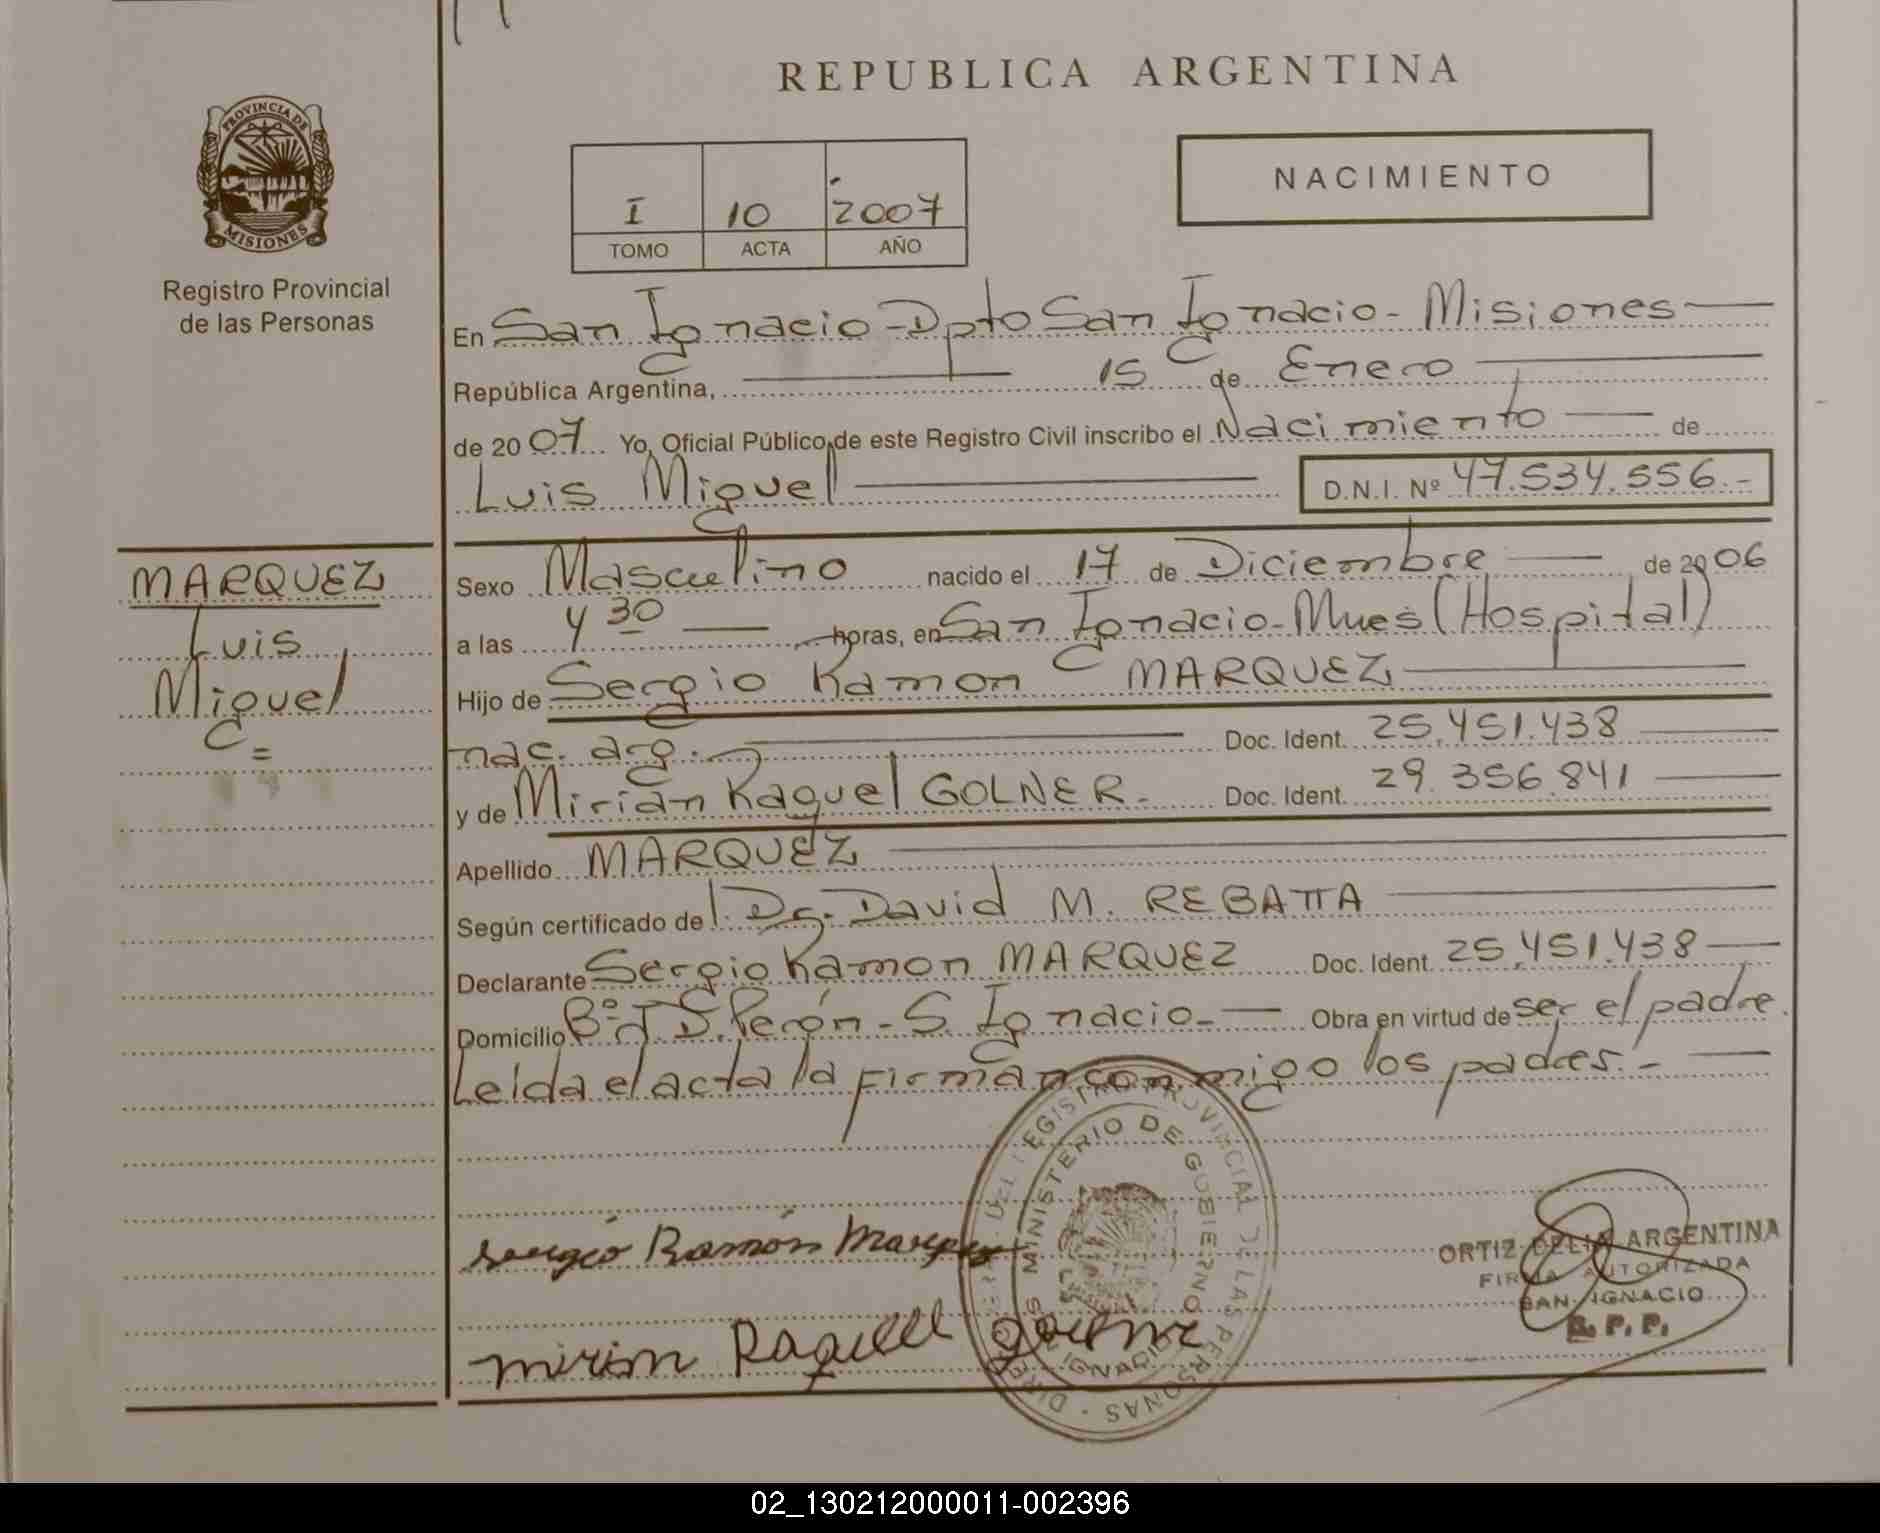 REPUBLICA ARGENTINA
PROVINCIA DE
MISIONES
Registro Provincial
de las Personas
I 10 2007
TOMO ACTA AÑO
NACIMIENTO
En San Ignacio - Dpto San Ignacio - Misiones
República Argentina, 15 de Enero
de 2007 Yo, Oficial Público de este Registro Civil inscribo el Nacimiento de
Luis Miguel D.N.I. Nº 47.534.556.-
MARQUEZ
Luis
Miguel
Sexo Masculino nacido el 17 de Diciembre de 2006
a las 4 30 horas, en San Ignacio - Mnes (Hospital)
Hijo de Sergio Ramon MARQUEZ
nac. arg. Doc. Ident. 25.451.438
y de Mirian Raquel GOLNER. Doc. Ident. 29.356.841
Apellido MARQUEZ
Según certificado de Dr. David M. REBATTA
Declarante Sergio Ramon MARQUEZ Doc. Ident. 25.451.438
Domicilio Bº J. D. Perón - S. Ignacio - Obra en virtud de ser el padre.
Leida el acta la firman conmigo los padres.-
REGISTRO PROVINCIAL DE LAS PERSONAS
MINISTERIO DE GOBIERNO
IGNACIO
Sergio Ramón Marquez
mirian Raquel
ORTIZ DELIA ARGENTINA
FIRMA AUTORIZADA
SAN IGNACIO
R. P. P.
02_130212000011-002396